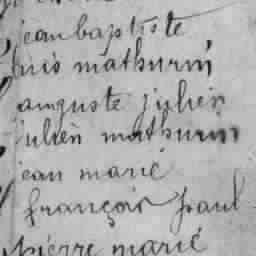 jean baptiste
mathurin
auguste julien
julien mathurin
jean marie
françois paul
pierre marié